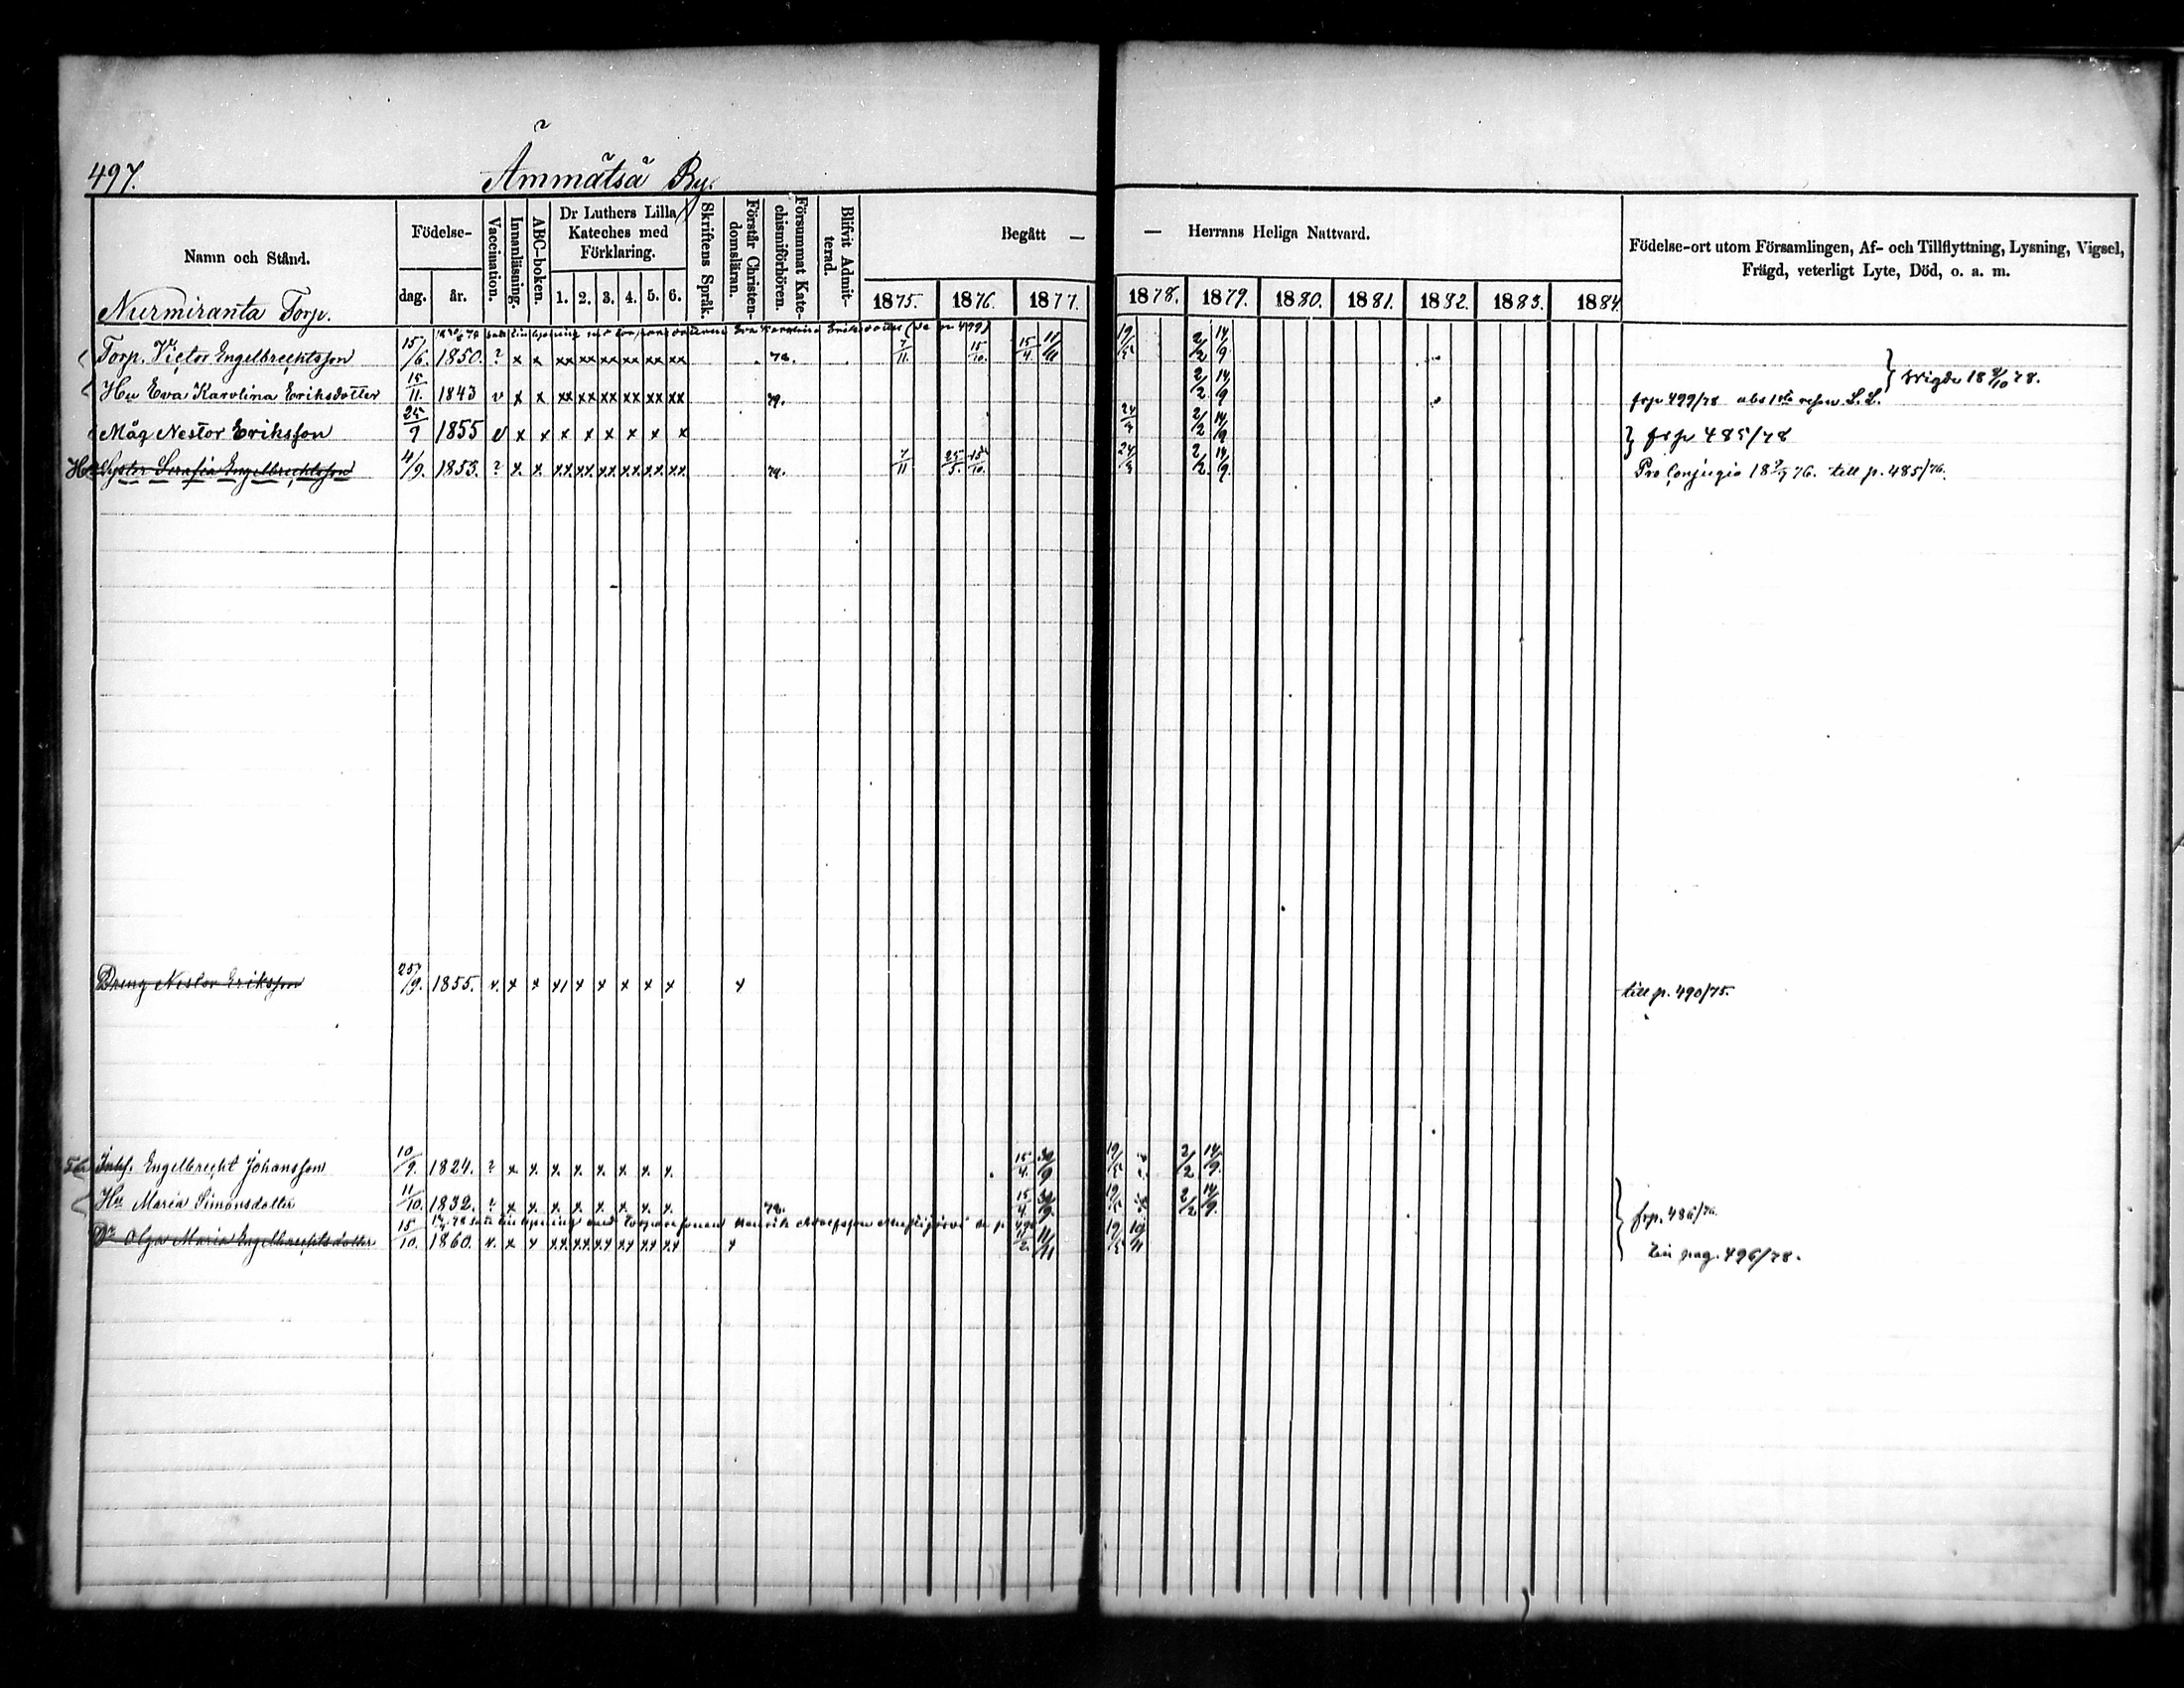 497.
Ämmätsä By.
Namn och Stånd.
Födelse-
dag.
år.
Vaccination.
Innanläsning.
ABC-boken.
Dr Luthers Lilla
Kateches med
Förklaring.
1. 2. 3. 4. 5. 6.
Skriftens Språk.
Förstår Christen-
domsläran.
Försummat Kate-
chismiförhören.
Blifvit Admit-
terad.
Begått —
— Herrans Heliga Nattvard.
1875. 1876. 1877. 1878. 1879. 1880. 1881. 1882. 1883. 1884
Födelse-ort utom Församlingen, Af- och Tillflyttning, Lysning, Vigsel,
Frägd, veterligt Lyte, Död, o. a. m.
Nurmiranta Torp.
Eva Karolina Eriksdotter (se p 499)
Torp. Victor Engelbrechtsson 15/6. 1850. ? x x xx xx xx xx xx xx 78. 7/11. 15/10. 15/4. 11/11 19/5 2/2 14/9
Wigde 18 8/10 78.
Hu Eva Karolina Eriksdotter 15/11. 1843 v x x xx xx xx xx xx xx 79. 2/2 14/9 frp 499/78
Måg Nestor Eriksson 25/9 1855 v x x x x x x x x 24/3 2/2 14/9 frp 485/78
Hu Syster Serafia Engelbrechtsson 4/9. 1853. ? x. x. xx. xx. xx. xx. xx. xx. 79. 7/11 25/5. 15/10. 24/3 2/2. 14/9. Pro Conjugio 76. till p. 485/76.
Dreng Nestor Eriksson 25/9. 1855. v. x x x x x x x x x till p. 490/75.
Inhs. Engelbrecht Johansson 10/9. 1824. ? x x. x. x. x. x. x. x. 15/4. 30/9 19/5 2/2 14/9.
Hu Maria Simonsdotter 11/10. 1832. ? x. x. x. x. x. x. x. x. 78. 15/4. 30/9. 19/5 2/2 14/9. frp. 486/76.
Dr Olga Maria Engelbrechtsdotter 15/10. 1860. v. x x xx xx xx xx xx xx x 11/2. 11/11 19/5 10/11 till pag. 496/78.